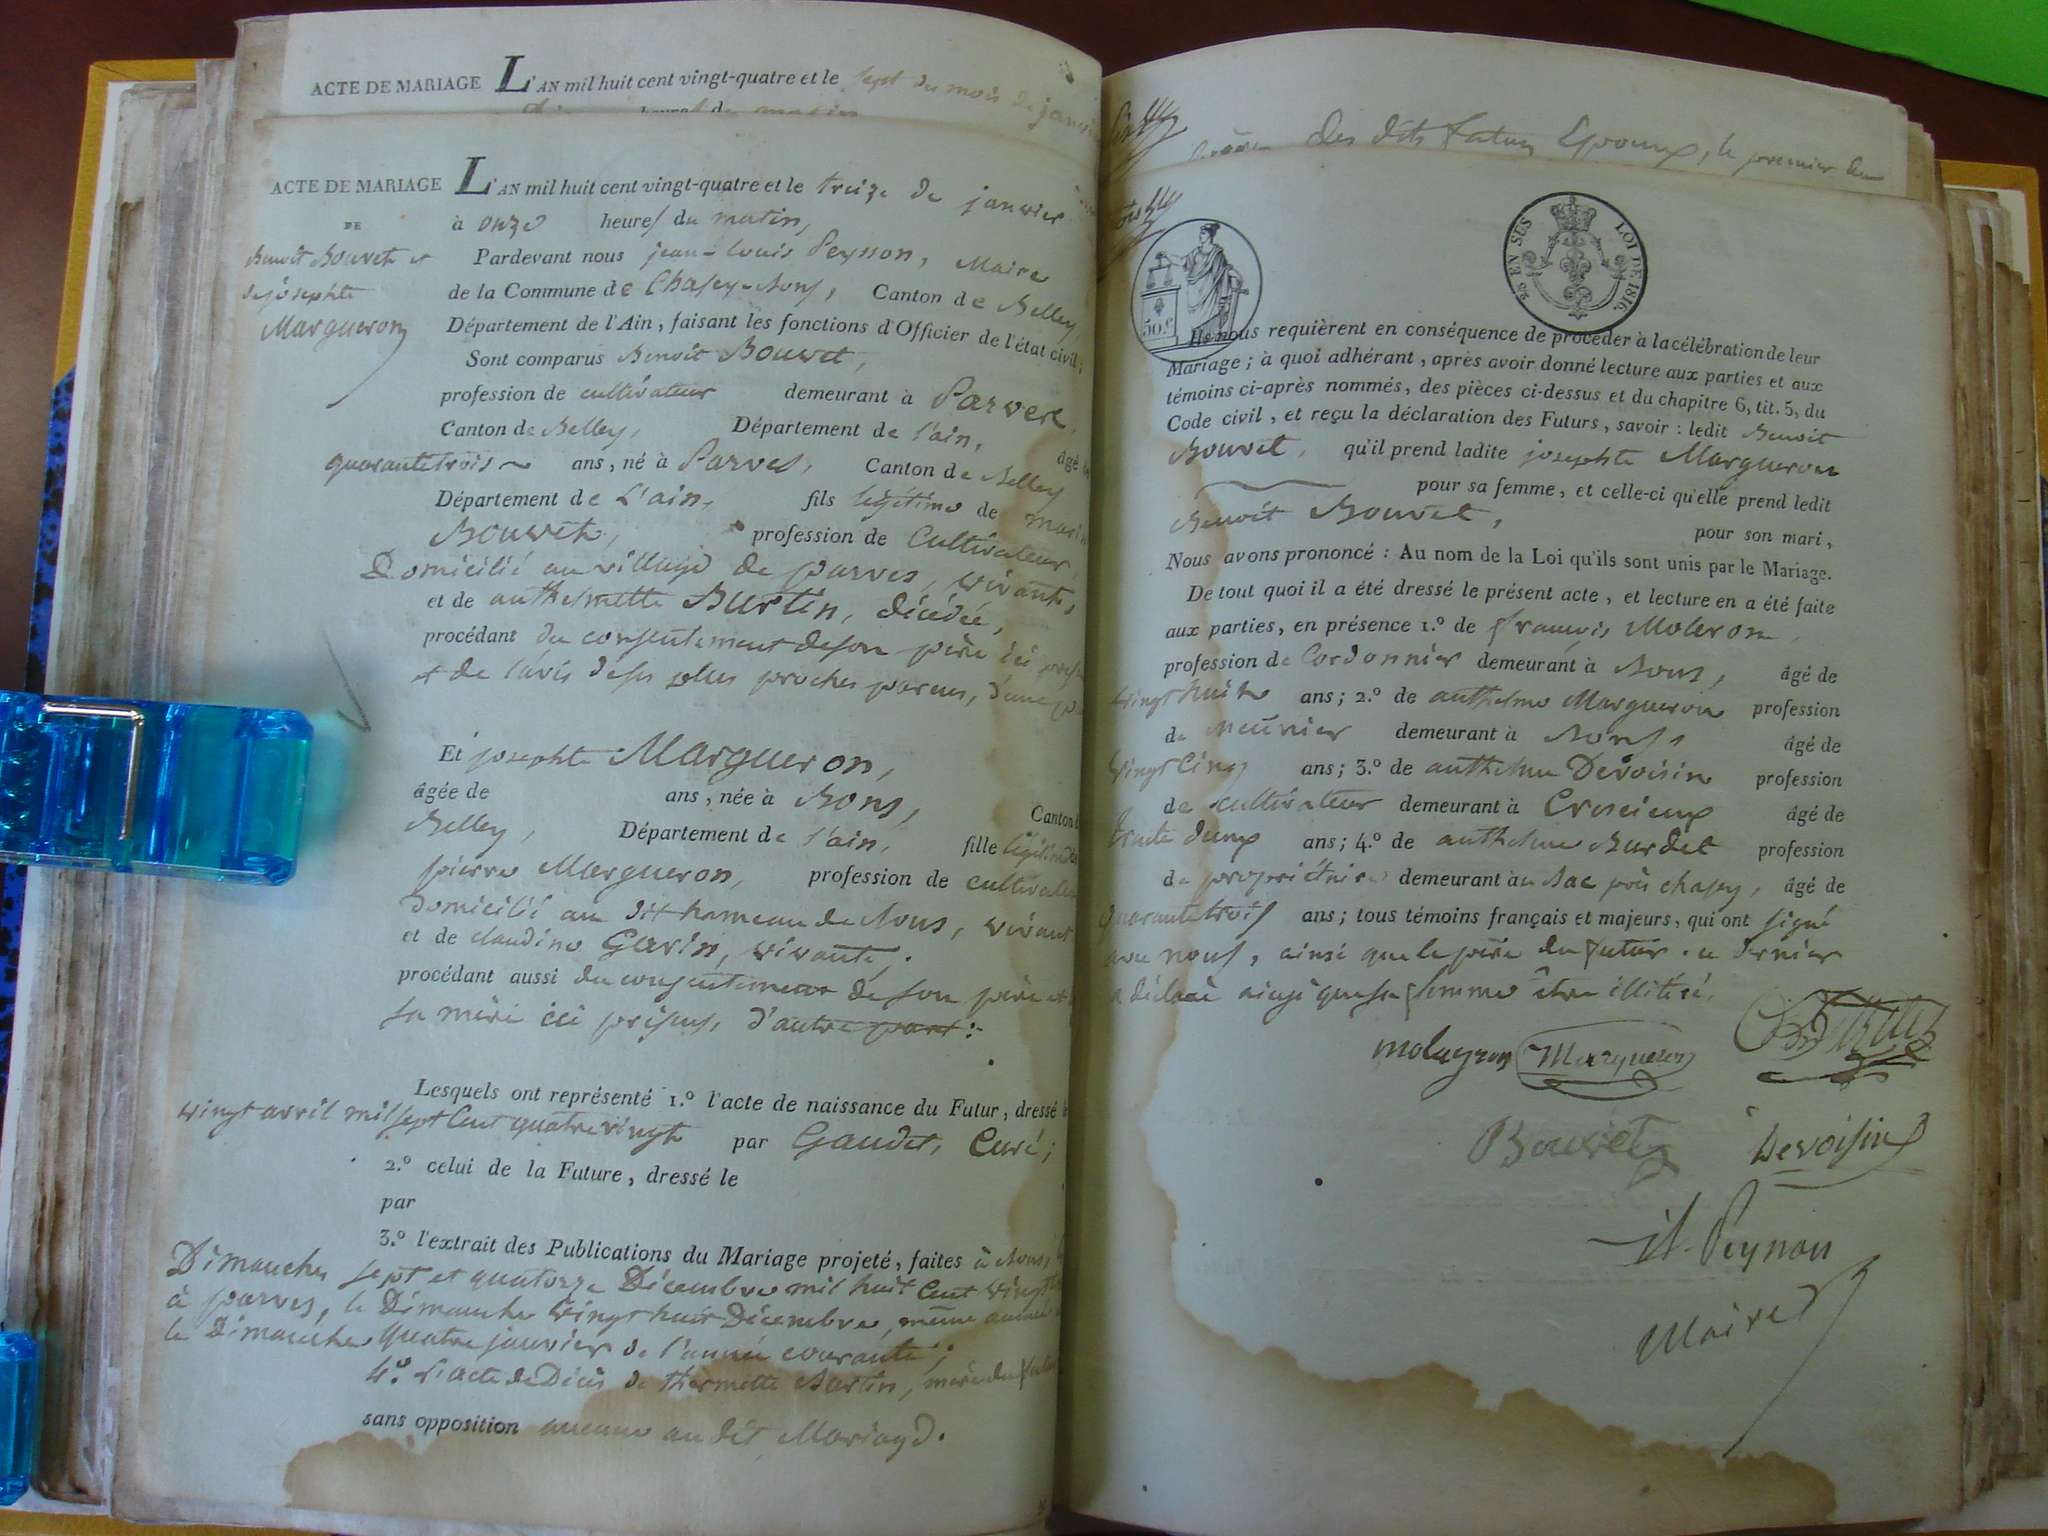 ACTE DE MARIAGE L'AN mil huit cent vingt-quatre et le sept du mois de janvier
heures du matin
ACTE DE MARIAGE L'AN mil huit cent vingt-quatre et le treize de janvier
DE
à onze heures du matin,
Benoit Bouvet et
josephte
Margueron
Pardevant nous jean-Louis Peynon, Maire
de la Commune de Chasey-Bons, Canton de Belley,
Département de l'Ain, faisant les fonctions d'Officier de l'état civil;
Sont comparus Benoit Bouvet,
profession de cultivateur demeurant à Parves,
Canton de Belley, Département de l'ain, âgé de
quarante trois ans, né à Parves, Canton de Belley
Département de L'ain, fils légitime de
Bouvet, profession de Cultivateur,
Domicilié au village de parves, vivant,
et de Burtin, décédée,
procédant du consentement de son père ici
et de l'avis de ses plus proches parens, d'une
Et josephte Margueron,
âgée de ans, née à Bons, Canton
Belley, Département de l'ain, fille légitime
pierre Margueron, profession de cultivateur
Domicilié au dit hameau de Bons, vivant
et de claudine Gavin, vivante,
procédant aussi du consentement de son père et
sa mère ici présens, d'autre part:
Lesquels ont représenté 1.º l'acte de naissance du Futur, dressé
vingt avril mil sept Cent quatre vingt par Gaudet, Curé;
2.º celui de la Future, dressé le
par
3.º l'extrait des Publications du Mariage projeté, faites à Bons,
Dimanches sept et quatorze Décembre mil huit Cent vingt
à parves, le Dimanche vingt huit Décembre, même année
le Dimanche quatre janvier de l'année courante;
4º L'acte de Décès de thermette Burtin, mère du futur
sans opposition aucune au dit Mariage.
des dits futurs Epoux, le premier
20 EN SUS LOI DE 1816.
50.c
Ils nous requièrent en conséquence de procéder à la célébration de leur
Mariage; à quoi adhérant, après avoir donné lecture aux parties et aux
témoins ci-après nommés, des pièces ci-dessus et du chapitre 6, tit. 5, du
Code civil, et reçu la déclaration des Futurs, savoir: ledit Benoit
Bouvet, qu'il prend ladite josephte Margueron
pour sa femme, et celle-ci qu'elle prend ledit
Benoit Bouvet,
pour son mari,
Nous avons prononcé: Au nom de la Loi qu'ils sont unis par le Mariage.
De tout quoi il a été dressé le présent acte, et lecture en a été faite
aux parties, en présence 1.º de françois Moleron,
profession de Cordonnier demeurant à Bons, âgé de
vingt huit ans; 2.º de anthelme Margueron profession
de Meûnier demeurant à Bons, âgé de
vingt Cinq ans; 3.º de anthelme Devoisin profession
de cultivateur demeurant à Croscieux âgé de
trente deux ans; 4.º de anthelme Burdet profession
de propriétaire demeurant au Bac près chasey, âgé de
quarante trois ans; tous témoins français et majeurs, qui ont signé
avec nous, ainsi que le père du futur. ce dernier
a déclaré ainsi que sa femme être illitéré.
Margueron
Bouvet
Devoisin
Peynon
Maire